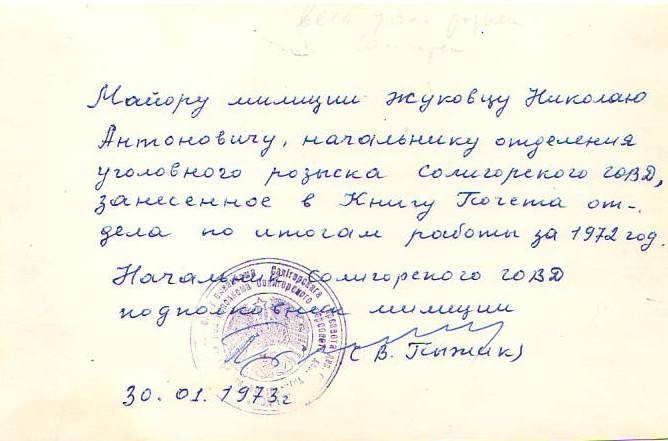 Майору милиции Жуковцу Николаю
Антоновичу, начальнику отделения
уголовного розыска Солигорского ГОВД,
занесенное в Книгу Почета от-
дела по итогам работы за 1972 год.
Начальник Солигорского ГОВД
подполковник милиции
(В. Пыжик)
30.01.1973г